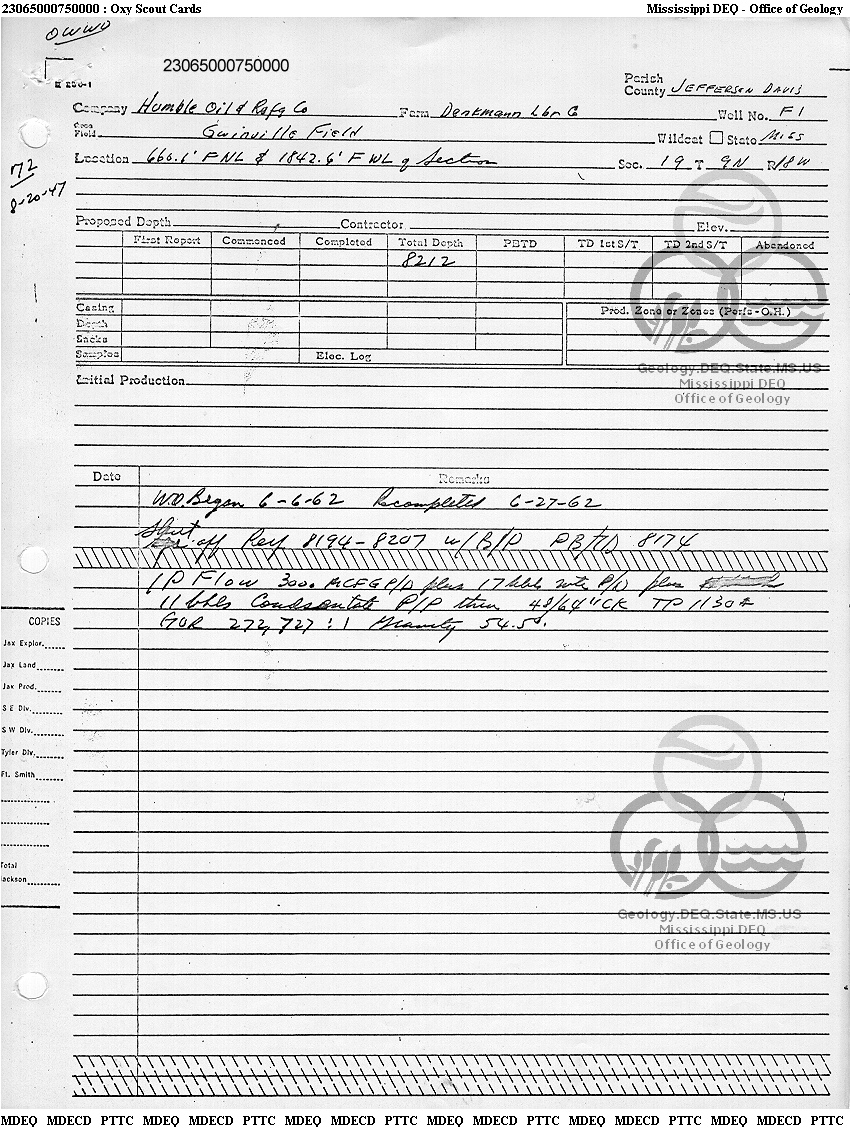 23065000750000 : Oxy Scout Cards Mississippi DEQ - Office of Geology
OWWO
23065000750000
Parish
County JEFFERSON DAVIS
Company Humble Oil & Refg Co Farm Denkmann Lbr C Well No. F1
Area
Field Gwinville Field Wildcat State MISS
Location 660.1' FNL & 1842.6' FWL of Section Sec. 19 T 9N R 18W
72
8-20-47
Proposed Depth Contractor Elev.
First Report Commenced Completed Total Depth PBTD TD 1st S/T TD 2nd S/T Abandoned
8212
Casing Prod. Zone or Zones (Perfs - O.H.)
Depth
Sacks
Samples Elec. Log
Geology.DEQ.State.MS.US
Mississippi DEQ
Office of Geology
Initial Production
Date Remarks
W.O. Began 6-6-62 Recompleted 6-27-62
Shut off Perf 8194-8207 w/B/P PB/TD 8174
IP Flow 3000 MCFGP/D plus 17 bbls wtr P/D plus
11 bbls Condsentate P/D thru 48/64" CK TP 1130#
GOR 272,727:1 Gravity 54.5°.
COPIES
Jax Explor.
Jax Land
Jax Prod.
S E Div.
S W Div.
Tyler Div.
Ft. Smith
Total
Jackson
Geology.DEQ.State.MS.US
Mississippi DEQ
Office of Geology
MDEQ MDECD PTTC MDEQ MDECD PTTC MDEQ MDECD PTTC MDEQ MDECD PTTC MDEQ MDECD PTTC MDEQ MDECD PTTC